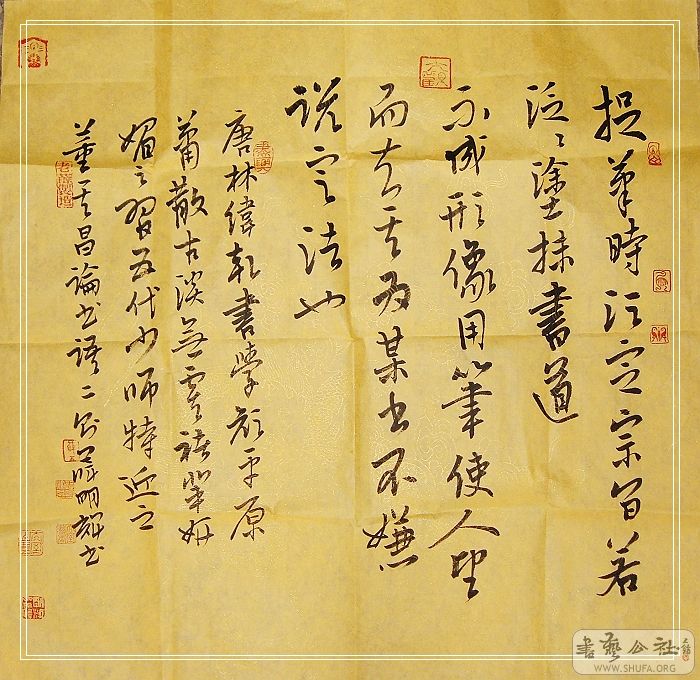 捉筆時須定宗旨若
泛泛塗抹書道
不成形像用筆使人望
而知其為某書不嫌
說定法也
唐林緯乾書學顏平原
蕭散古淡無虞褚輩妍
媚之習五代少師特近之
董其昌論書語二則 明 書
六觀
書藝公社
WWW.SHUFA.ORG